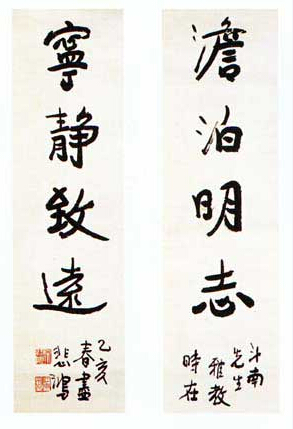 澹泊明志
斗南
先生
雅教
時在
寧静致遠
乙亥
春盡
悲鴻